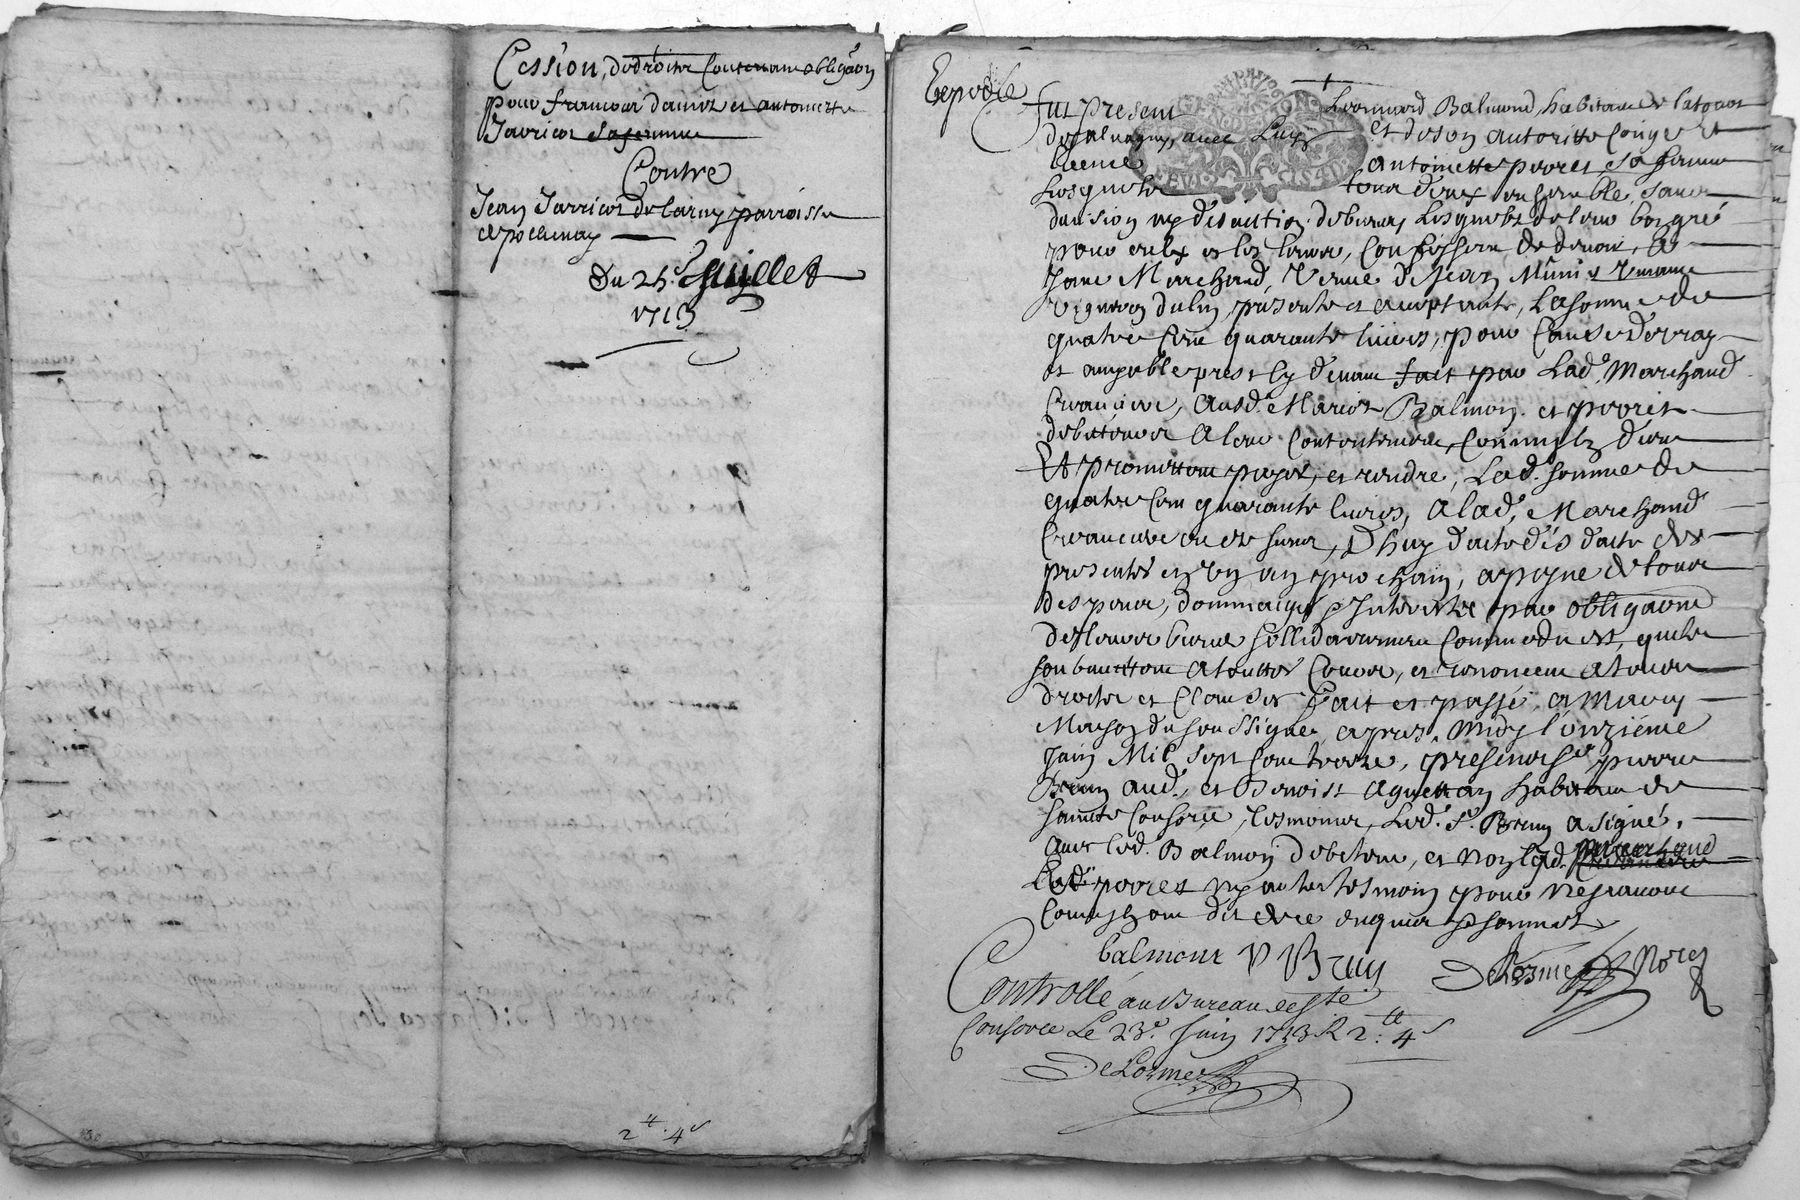 Cession de droits Contenant obligãon
pour francois et antoinette
Jarricot sa femme
Contre
Jean Jarricot de parroisse
de pollionay
Du 25.e Juillet
1713
2 ₶ . 4 s
Expedié
fut present Leonnard Balmond, habitant de la tour
de salvagny, avec luy et de son autoritte Conge et
licence antoinette poret, sa femme
Lesquels tous deux ensemble, sans
division ny discution debiteurs Lesquels de leur bon gré
pour eulx et les leurs, Confessent de devoir, A
Jane Marchand, Vefve de Jean vivant
vigneron dud. lieu, presente et acceptante, La somme de
quatre Cent quarante livres, pour Cause de vray
et amyable prest cy devant fait par Lad.e Marchand
Creanciere, Ausd. Mariez Balmon et poret
debiteurs A leur Contentement, Comm'ilz dient
Et promettent payer, et rendre, Lad. somme de
quatre Cent quarante livres, A lad.e Marchand
Creanciere ou es siens, D'huy datte des
presentes en Un an prochain, a payne de tous
despens, dommaiges Interestz par obligãon
de leurs biens sollidairement Comme dit est, qu'ilz
soubmettent A touttes Cours, et renoncent A tous
droits et Clauses fait et passé, a Marcy
Maison du soussigne, apres Midy l'onzieme
Juin Mil sept Cent treize, presens s.r pierre
Brun aud., et Benoist habitant de
saincte Consorce, tesmoins, Led. s.r Brun a signé,
avec led. Balmon debiteur, et non lad. Marchand
Lad. poret ny autre tesmoin pour ne scavoir
Comm'ilz ont dit de ce enquis et sommés
balmont P Brun DeLorme Nore
Controllé au Bureau de Ste
Consorce Le 23.e Juin 1713 R 2 ₶ 4 s
DeLorme